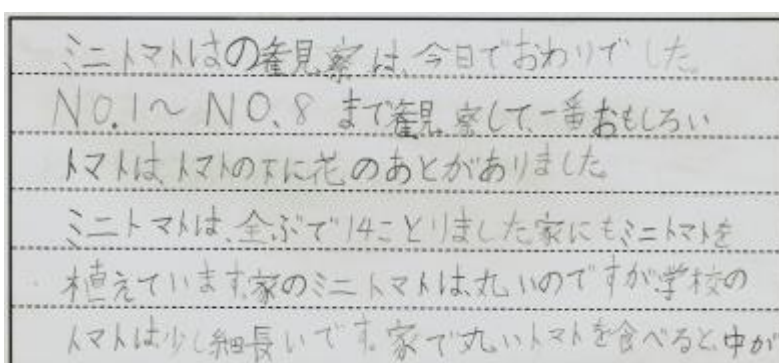 ミニトマトはの観察は、今日でおわりでした。
NO.1〜NO.8まで観察して、一番おもしろい
トマトは、トマトの下に花のあとがありました。
ミニトマトは、全ぶで14ことりました家にもミニトマトを
植えています。家のミニトマトは、丸いのですが、学校の
トマトは少し細長いです。家で丸いトマトを食べると、中が